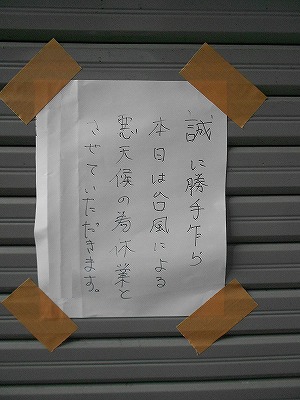 誠に勝手乍ら
本日は台風による
悪天候の為休業と
させていただきます。